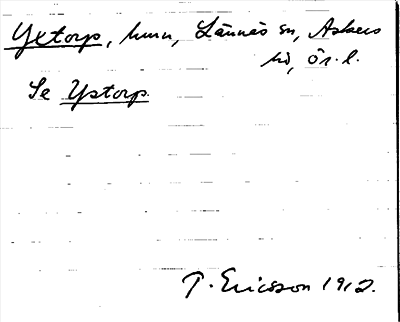 Yxtorp, hmn, Lännäs sn, Askers
hd, Ör. l.
Se Ystorp
T. Ericsson 1912.